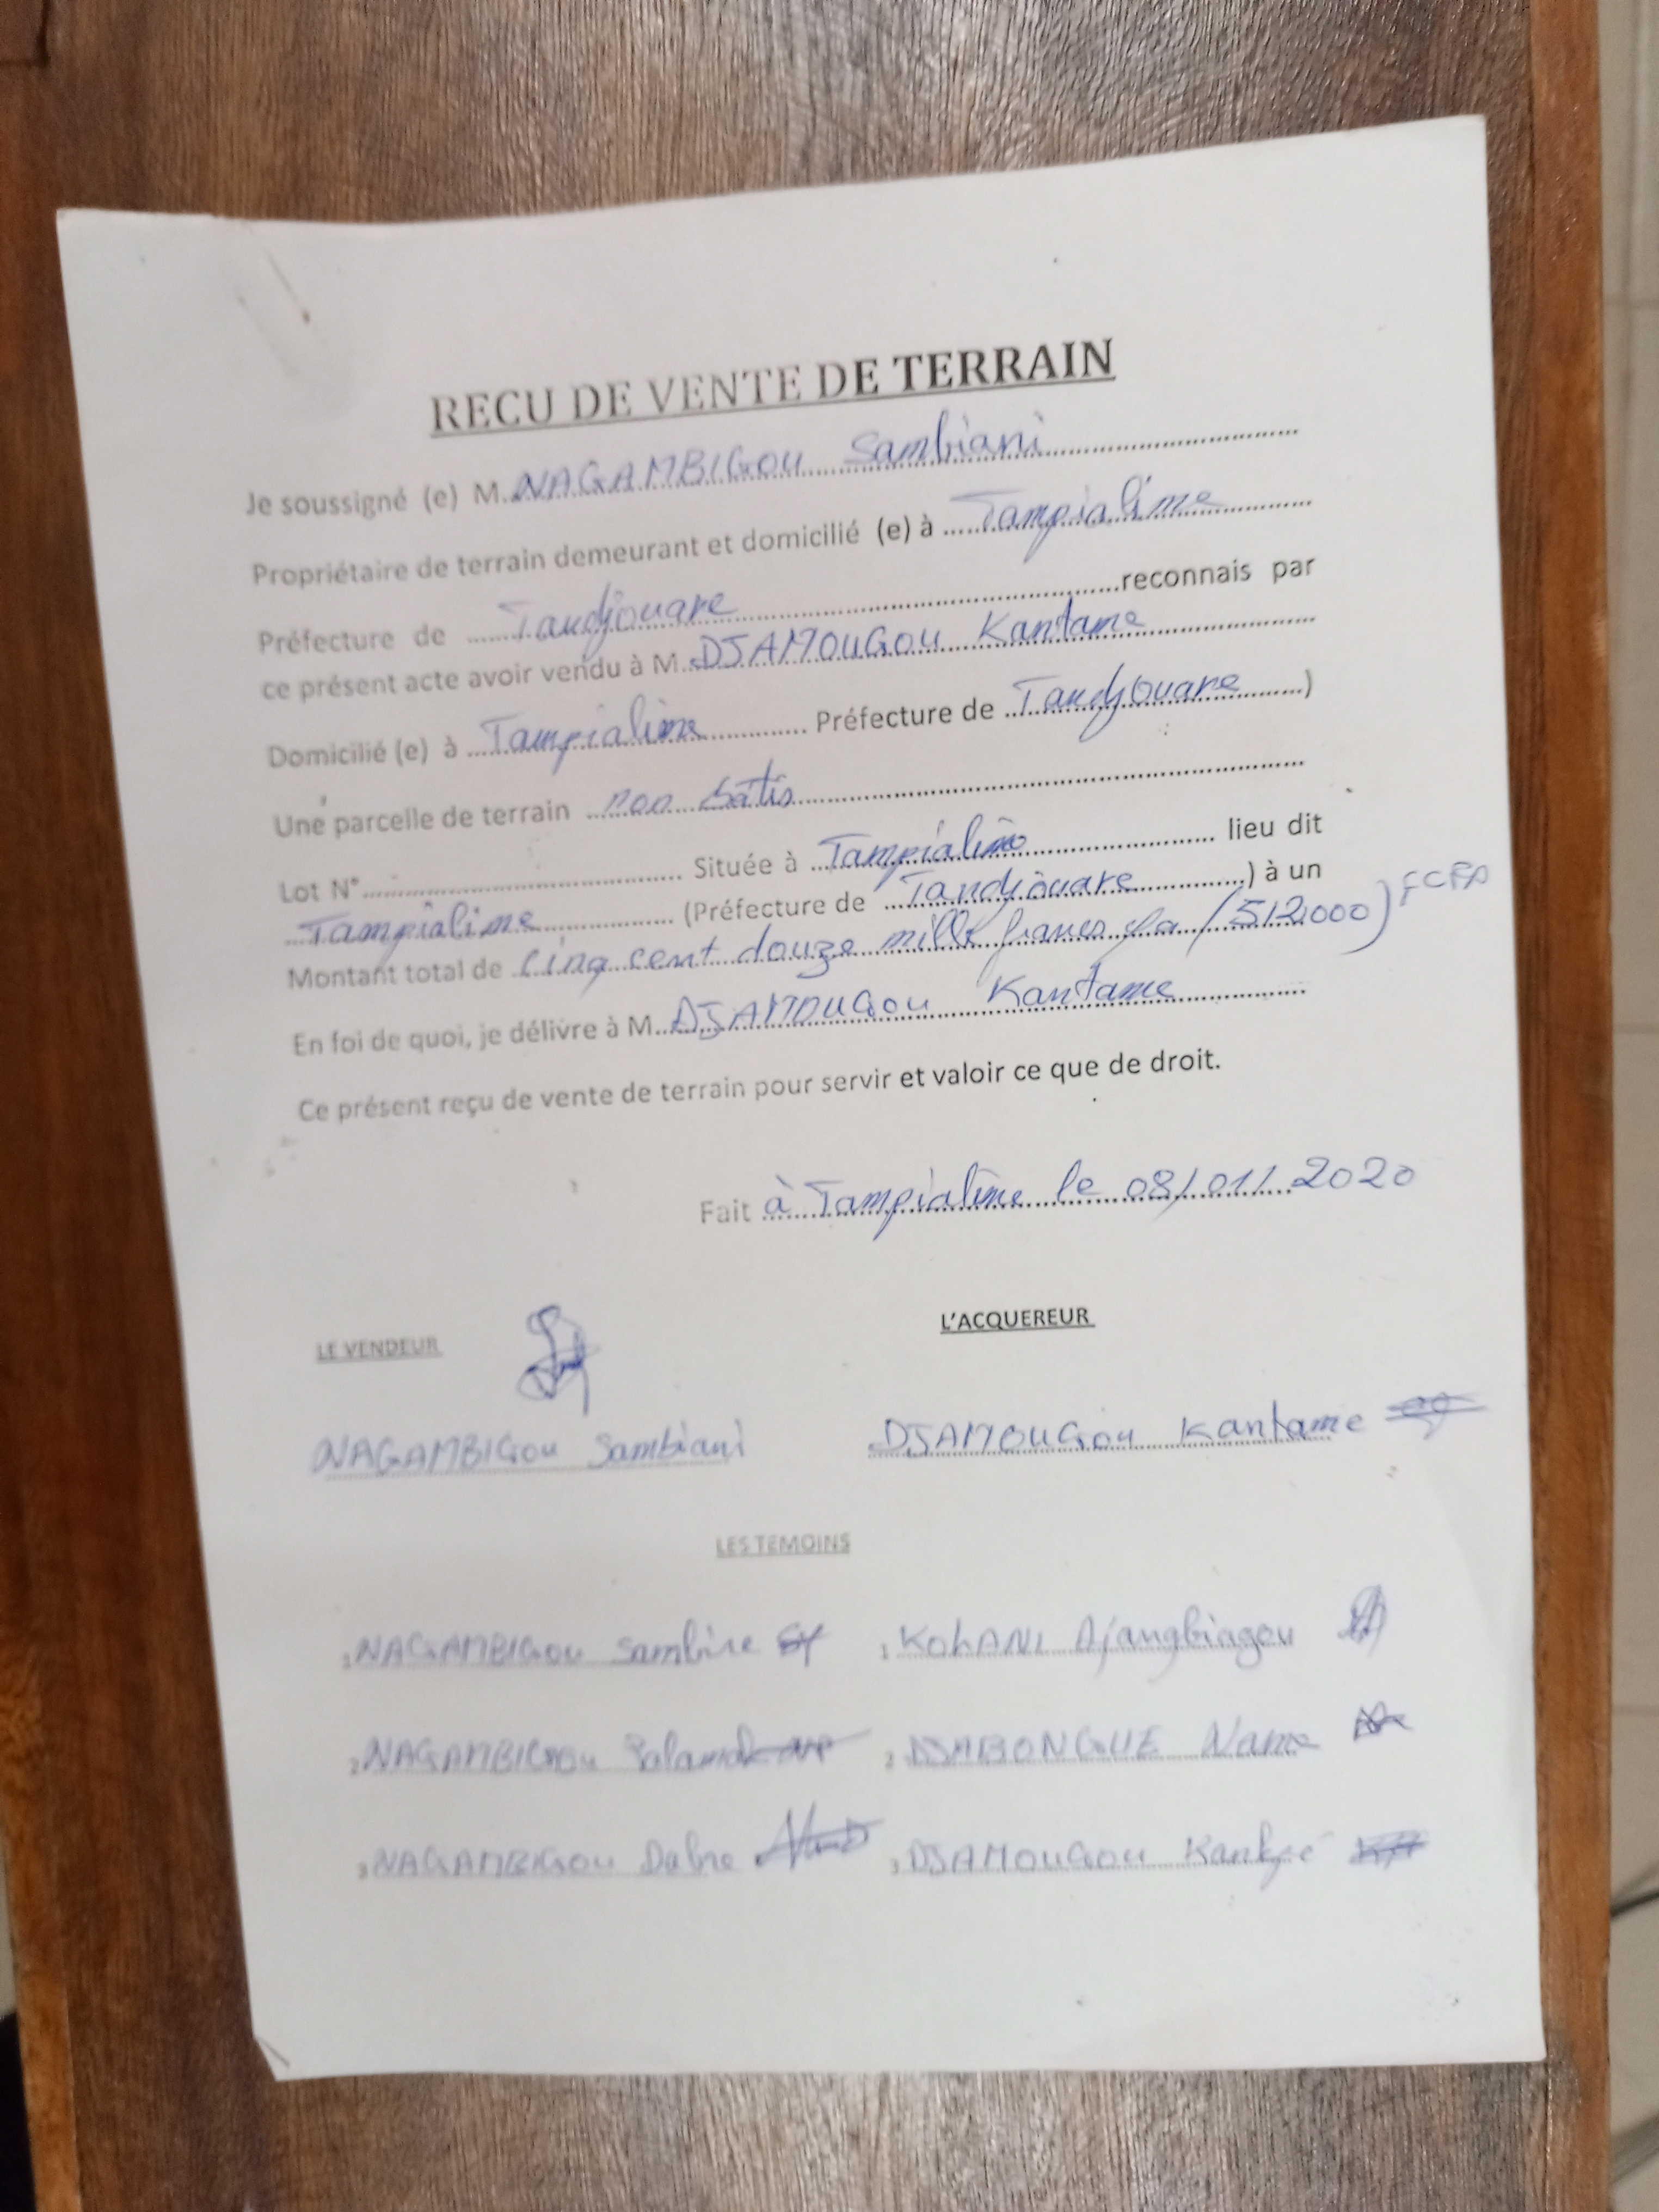 RECU DE VENTE DE TERRAIN
Je soussigné (e) M. NAGAMBIGOU Sambiani
Propriétaire de terrain demeurant et domicilié (e) à Tampialime
Préfecture de Tandjouare reconnais par
ce présent acte avoir vendu à M. DJAMOUGOU Kantame
Domicilié (e) à Tampialime Préfecture de Tandjouare )
Une parcelle de terrain non bâtis
Lot N° Située à Tampialime lieu dit
Tampialime (Préfecture de Tandjouare ) à un
Montant total de cinq cent douze mille francs cfa (512.000) FCFA
En foi de quoi, je délivre à M. DJAMOUGOU Kantame
Ce présent reçu de vente de terrain pour servir et valoir ce que de droit.
Fait à Tampialime le 08/01/2020
LE VENDEUR L'ACQUEREUR
NAGAMBIGOU Sambiani DJAMOUGOU Kantame
LES TEMOINS
1 NAGAMBIGOU 1 KOLANI Djangbiagou
2 NAGAMBIGOU 2 DJABONGUE Name
3 NAGAMBIGOU 3 DJAMOUGOU